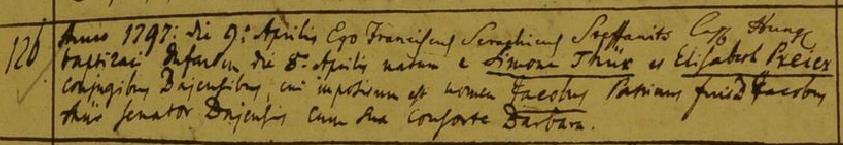 126 Anno 1797: die 9: Aprilis Ego Franciscus Seraphicus
baptizavi Infantem die 8: Aprilis natum e Simone Thür et Elisabeth Preier
conjugibus Dajensibus, cui impositum est nomen Jacobus Patrinus fuit Jacobus
Thür senator Dajensis cum sua consorte Barbara.